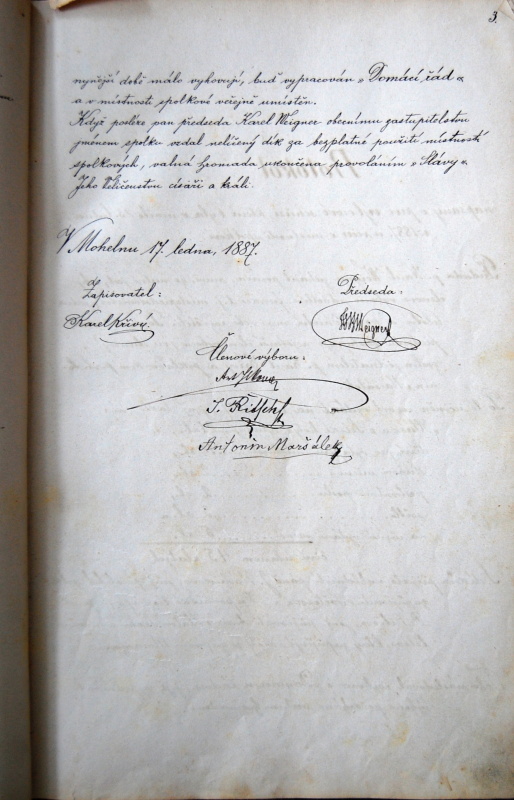 3.
nynější době málo vyhovují, buď vypracován „Domácí řád“
a v místnosti spolkové veřejně umístěn.
Když posléze pan předseda Karel Weigner obecnímu zastupitelstvu
jménem spolku vzdal nelíčený dík za bezplatné použití místností
spolkových, valná hromada ukončena provoláním „Slávy“
Jeho Veličenstvu císaři a králi.
V Mohelnu 17. ledna, 1887.
Zapisovatel: Předseda:
Karel Křivý Weigner
Členové výboru:
Ant
Antonín Maršálek